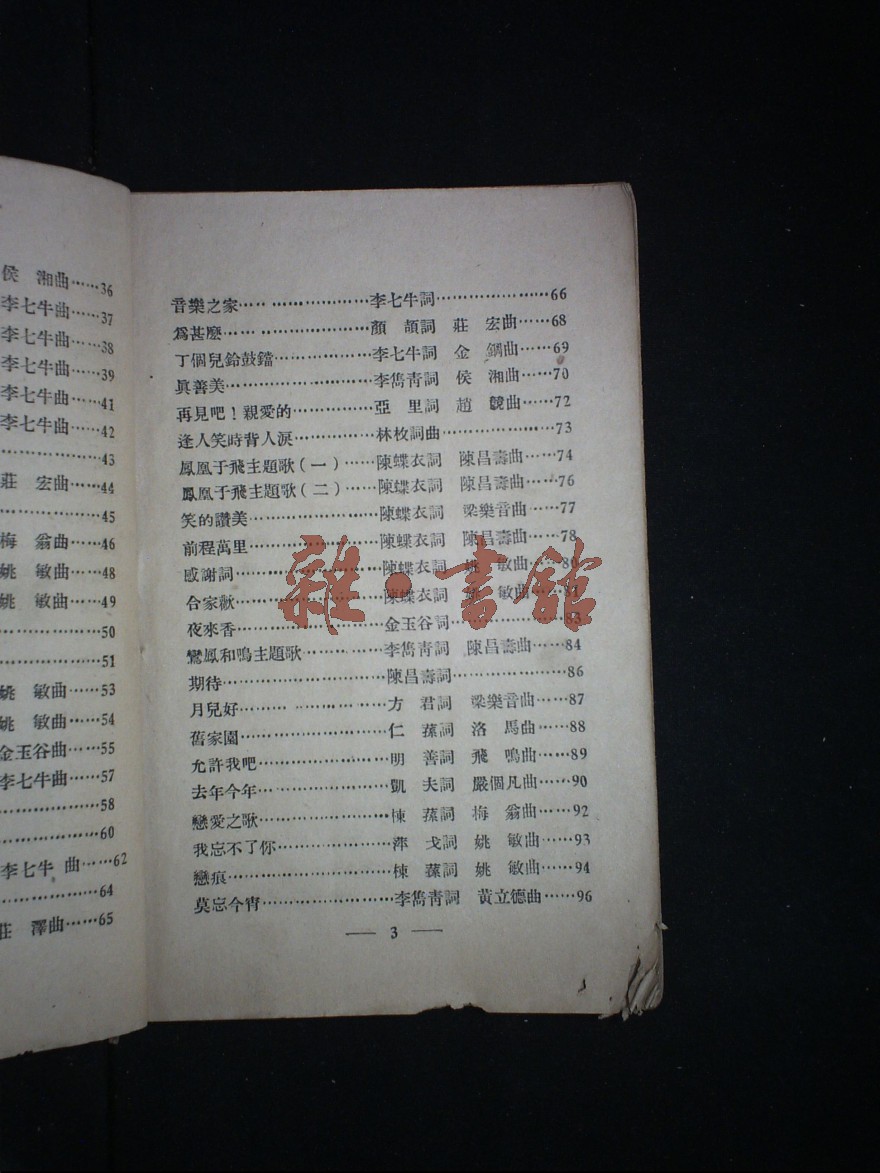 侯　湘曲……36
李七牛曲……37
李七牛曲……38
李七牛曲……39
李七牛曲……41
李七牛曲……42
………………43
莊　宏曲……44
………………45
梅　翁曲……46
姚　敏曲……48
姚　敏曲……49
………………50
………………51
姚　敏曲……53
姚　敏曲……54
金玉谷曲……55
李七牛曲……57
………………58
………………60
李七牛 曲……62
………………64
莊　澤曲……65
音樂之家…… ……………………李七牛詞…………………66
爲甚麽…… ……………………顏　頡詞　莊　宏曲……68
丁個兒鈴鼓鐺………………李七牛詞　金　鋼曲……69
眞善美………………………李雋青詞　侯　湘曲……70
再見吧！親愛的……………亞　里詞　趙　競曲……72
逢人笑時背人淚……………林枚詞曲…………………73
鳳凰于飛主題歌（一）……陳蝶衣詞　陳昌壽曲……74
鳳凰于飛主題歌（二）……陳蝶衣詞　陳昌壽曲……76
笑的讚美……………………陳蝶衣詞　梁樂音曲……77
前程萬里……………………陳蝶衣詞　陳昌壽曲……78
感謝詞………………………陳蝶衣詞　姚　敏曲……80
合家歡………………………陳蝶衣詞　姚　敏曲……81
夜來香………………………金玉谷詞…………………83
鸞鳳和鳴主題歌……………李雋青詞　陳昌壽曲……84
期待…………………………陳昌壽詞…………………86
月兒好………………………方　君詞　梁樂音曲……87
舊家園………………………仁　蓀詞　洛　馬曲……88
允許我吧……………………明　善詞　飛　鳴曲……89
去年今年……………………凱　夫詞　嚴個凡曲……90
戀愛之歌……………………棟　蓀詞　梅　翁曲……92
我忘不了你…………………萍　戈詞　姚　敏曲……93
戀痕…………………………棟　蓀詞　姚　敏曲……94
莫忘今宵……………………李雋青詞　黃立德曲……96
— 3 —
雜·書館